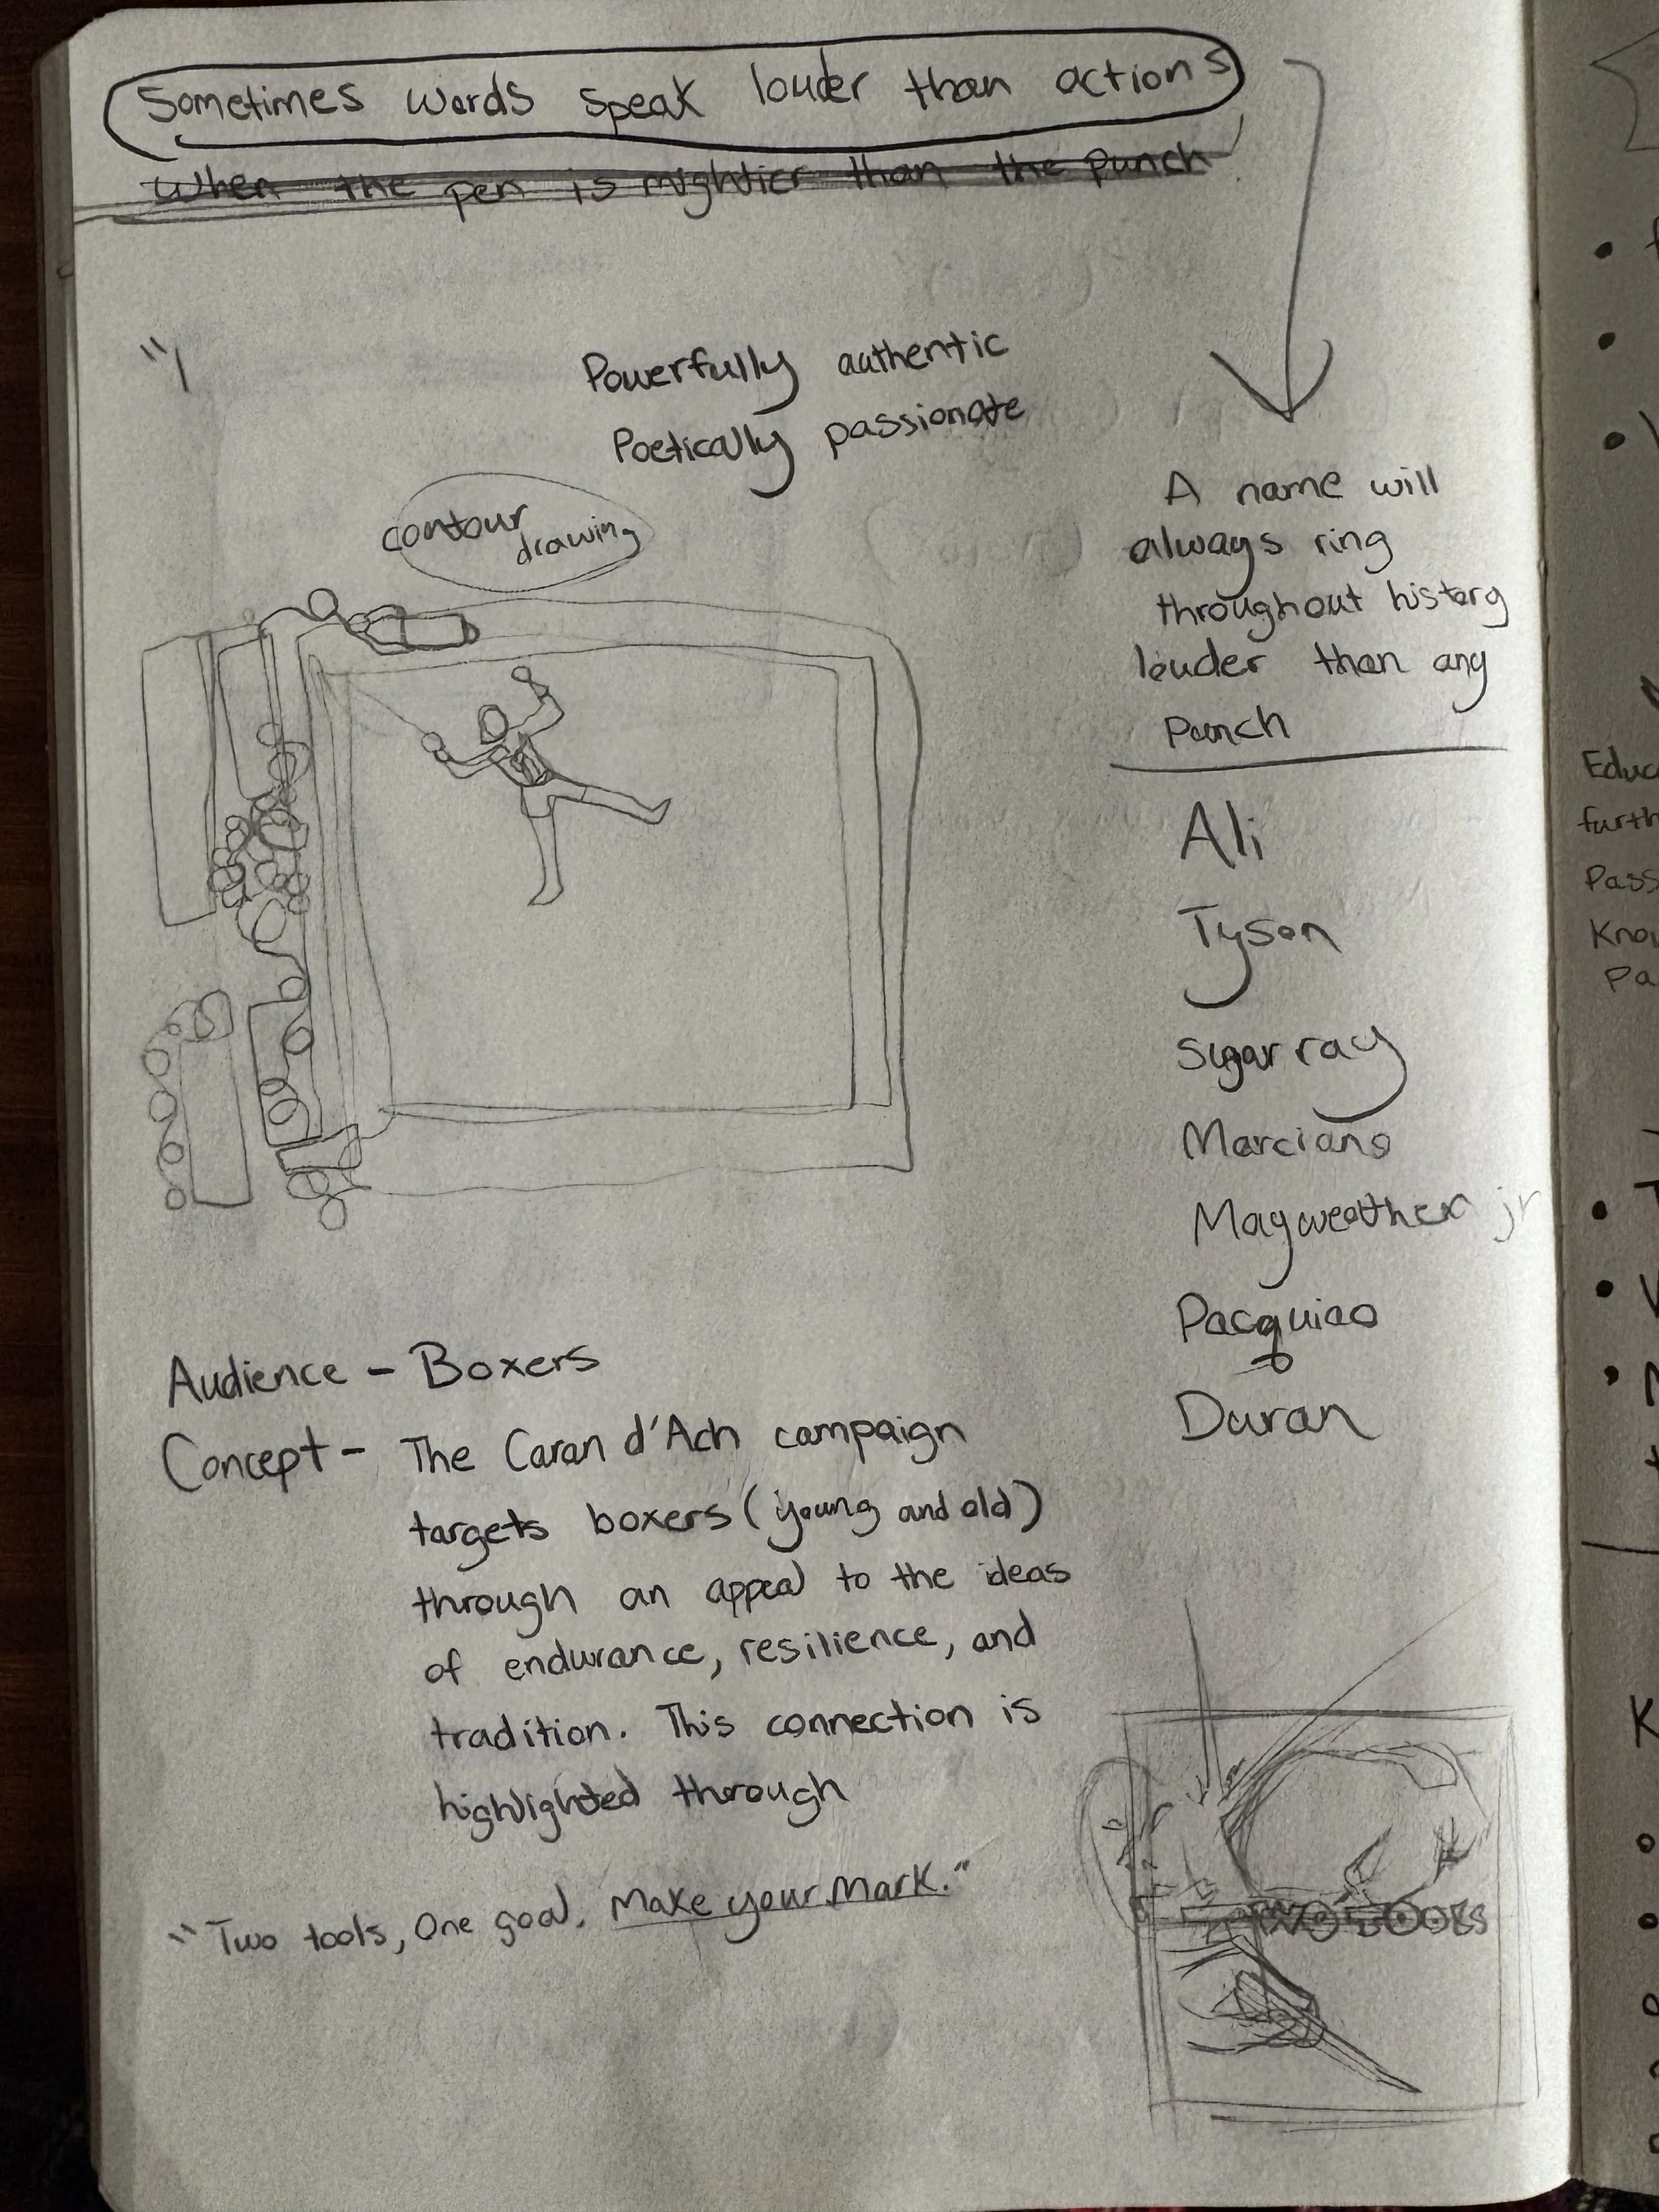 Sometimes words speak louder than actions
When the pen is mightier than the punch
Powerfully authentic
Poetically passionate
contour
drawing
A name will
always ring
throughout history
louder than any
Punch
Ali
Tyson
Sugar ray
Marciano
Mayweather jr
Pacquiao
Duran
Audience - Boxers
Concept - The Caran d'Ach campaign
targets boxers (young and old)
through an appeal to the ideas
of endurance, resilience, and
tradition. This connection is
highlighted through
"Two tools, One goal. Make your mark."
TWO TOOLS
Educ
furth
Pass
Know
Pa
K